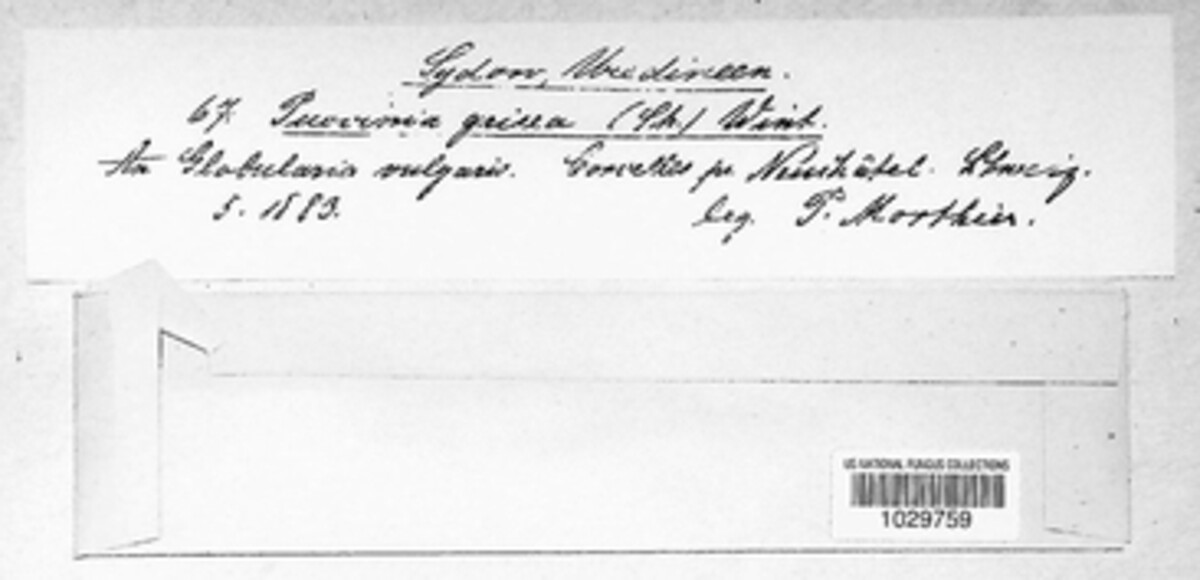 Sydow, Uredineen.
67. Puccinia grisea (Str.) Wint.
An Globularia vulgaris. Corcelles pr. Neuchâtel. Schweiz.
5. 1883. leg. P. Morthier.
US NATIONAL FUNGUS COLLECTIONS
1029759